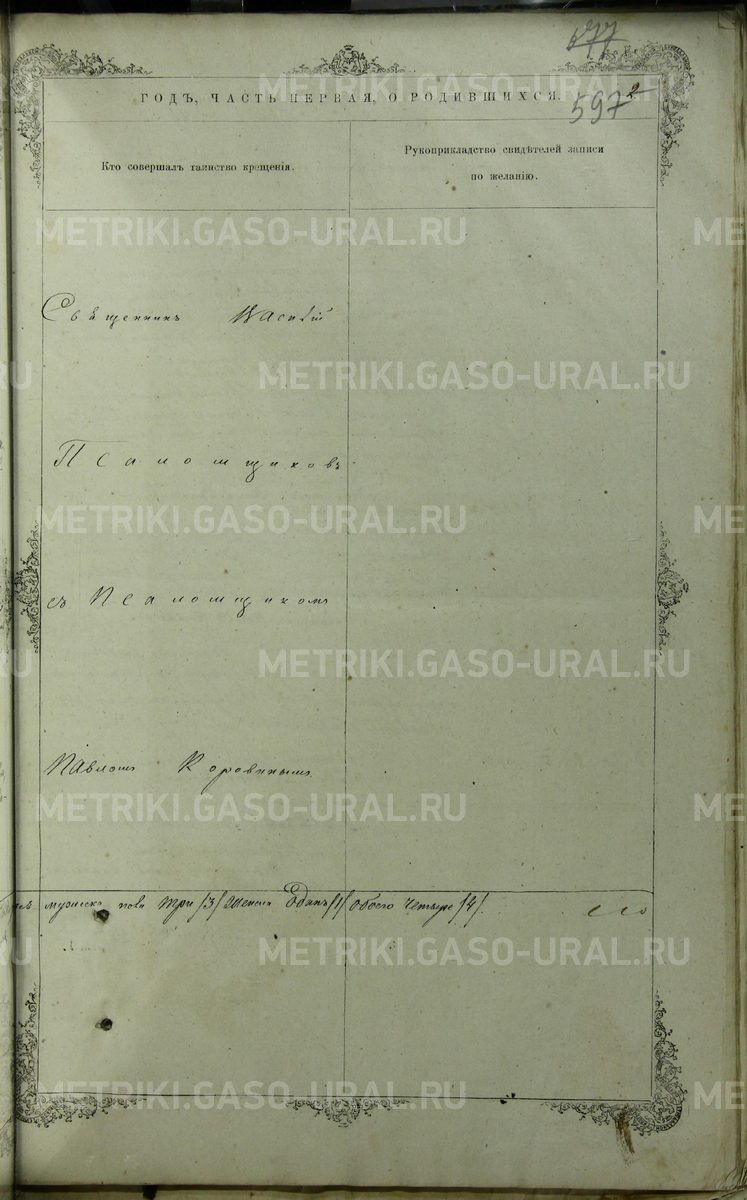 577
597
ГОДЪ, ЧАСТЬ ПЕРВАЯ, О РОДИВШИХСЯ.
Кто совершалъ таинство крещенія.
Рукоприкладство свидѣтелей записи
по желанію.
Священникъ Василій
Псаломщиковъ
съ Псаломщикомъ
Павломъ Коровинымъ
мужеска пола три /3/ женска Одинъ /1/ обоего четыре /4/.
METRIKI.GASO-URAL.RU